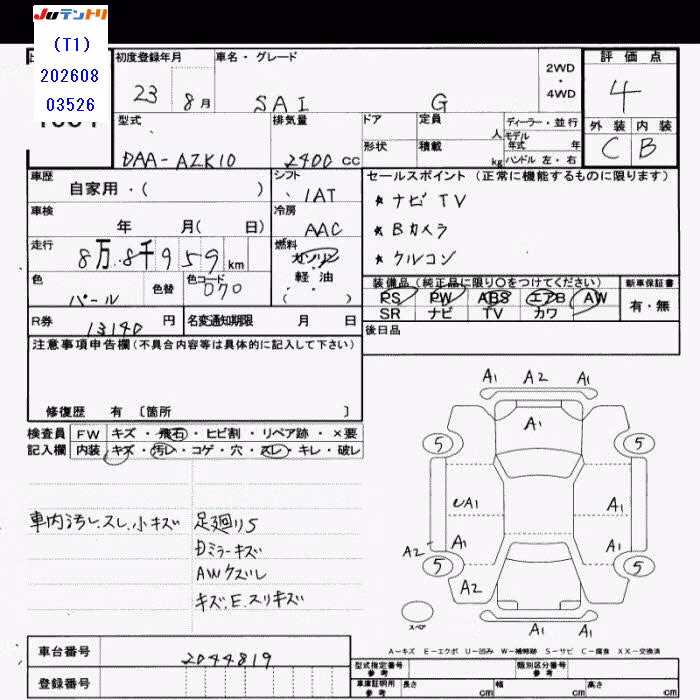 JUテントリ
(T1)
202608
03526
初度登録年月
23 8月
車名・グレード
SAI G
2WD
・
4WD
評価点
4
外装 内装
C B
型式
DAA-AZK10
排気量
2400 cc
ドア
形状
定員
人
積載
kg
ディーラー・並行
モデル
年式 年
ハンドル 左・右
車歴
自家用・( )
シフト
IAT
車検
年 月( 日)
冷房
AAC
走行
8万8千959 km
燃料
ガソリン
軽油
( )
色
パール
色替
色コード
070
R券
13140 円
名変通知期限 月 日
セールスポイント (正常に機能するものに限ります)
★ ナビ TV
★ Bカメラ
★ クルコン
装備品(純正品に限り○をつけてください)
PS PW ABS エアB AW
SR ナビ TV カワ
新車保証書
有・無
後日品
注意事項申告欄(不具合内容等は具体的に記入して下さい)
修復歴 有 〔箇所 〕
検査員 FW キズ・飛石・ヒビ割・リペア跡・×要
記入欄 内装 キズ・汚レ・コゲ・穴・スレ・キレ・破レ
車内汚レ、スレ、小キズ
足廻りS
Dミラーキズ
AWクズレ
キズ、E、スリキズ
A1 A2 A1
A1
5 5
A1 A1
A2 A1 A1
5 5
A2
A1 A1
スペア
A-キズ E-エクボ U-凹み W-補修跡 S-サビ C-腐食 XX-交換済
車台番号
2044819
登録番号
型式指定番号
参考
類別区分番号
参考
車庫証明用
参考
長さ cm 幅 cm 高さ cm